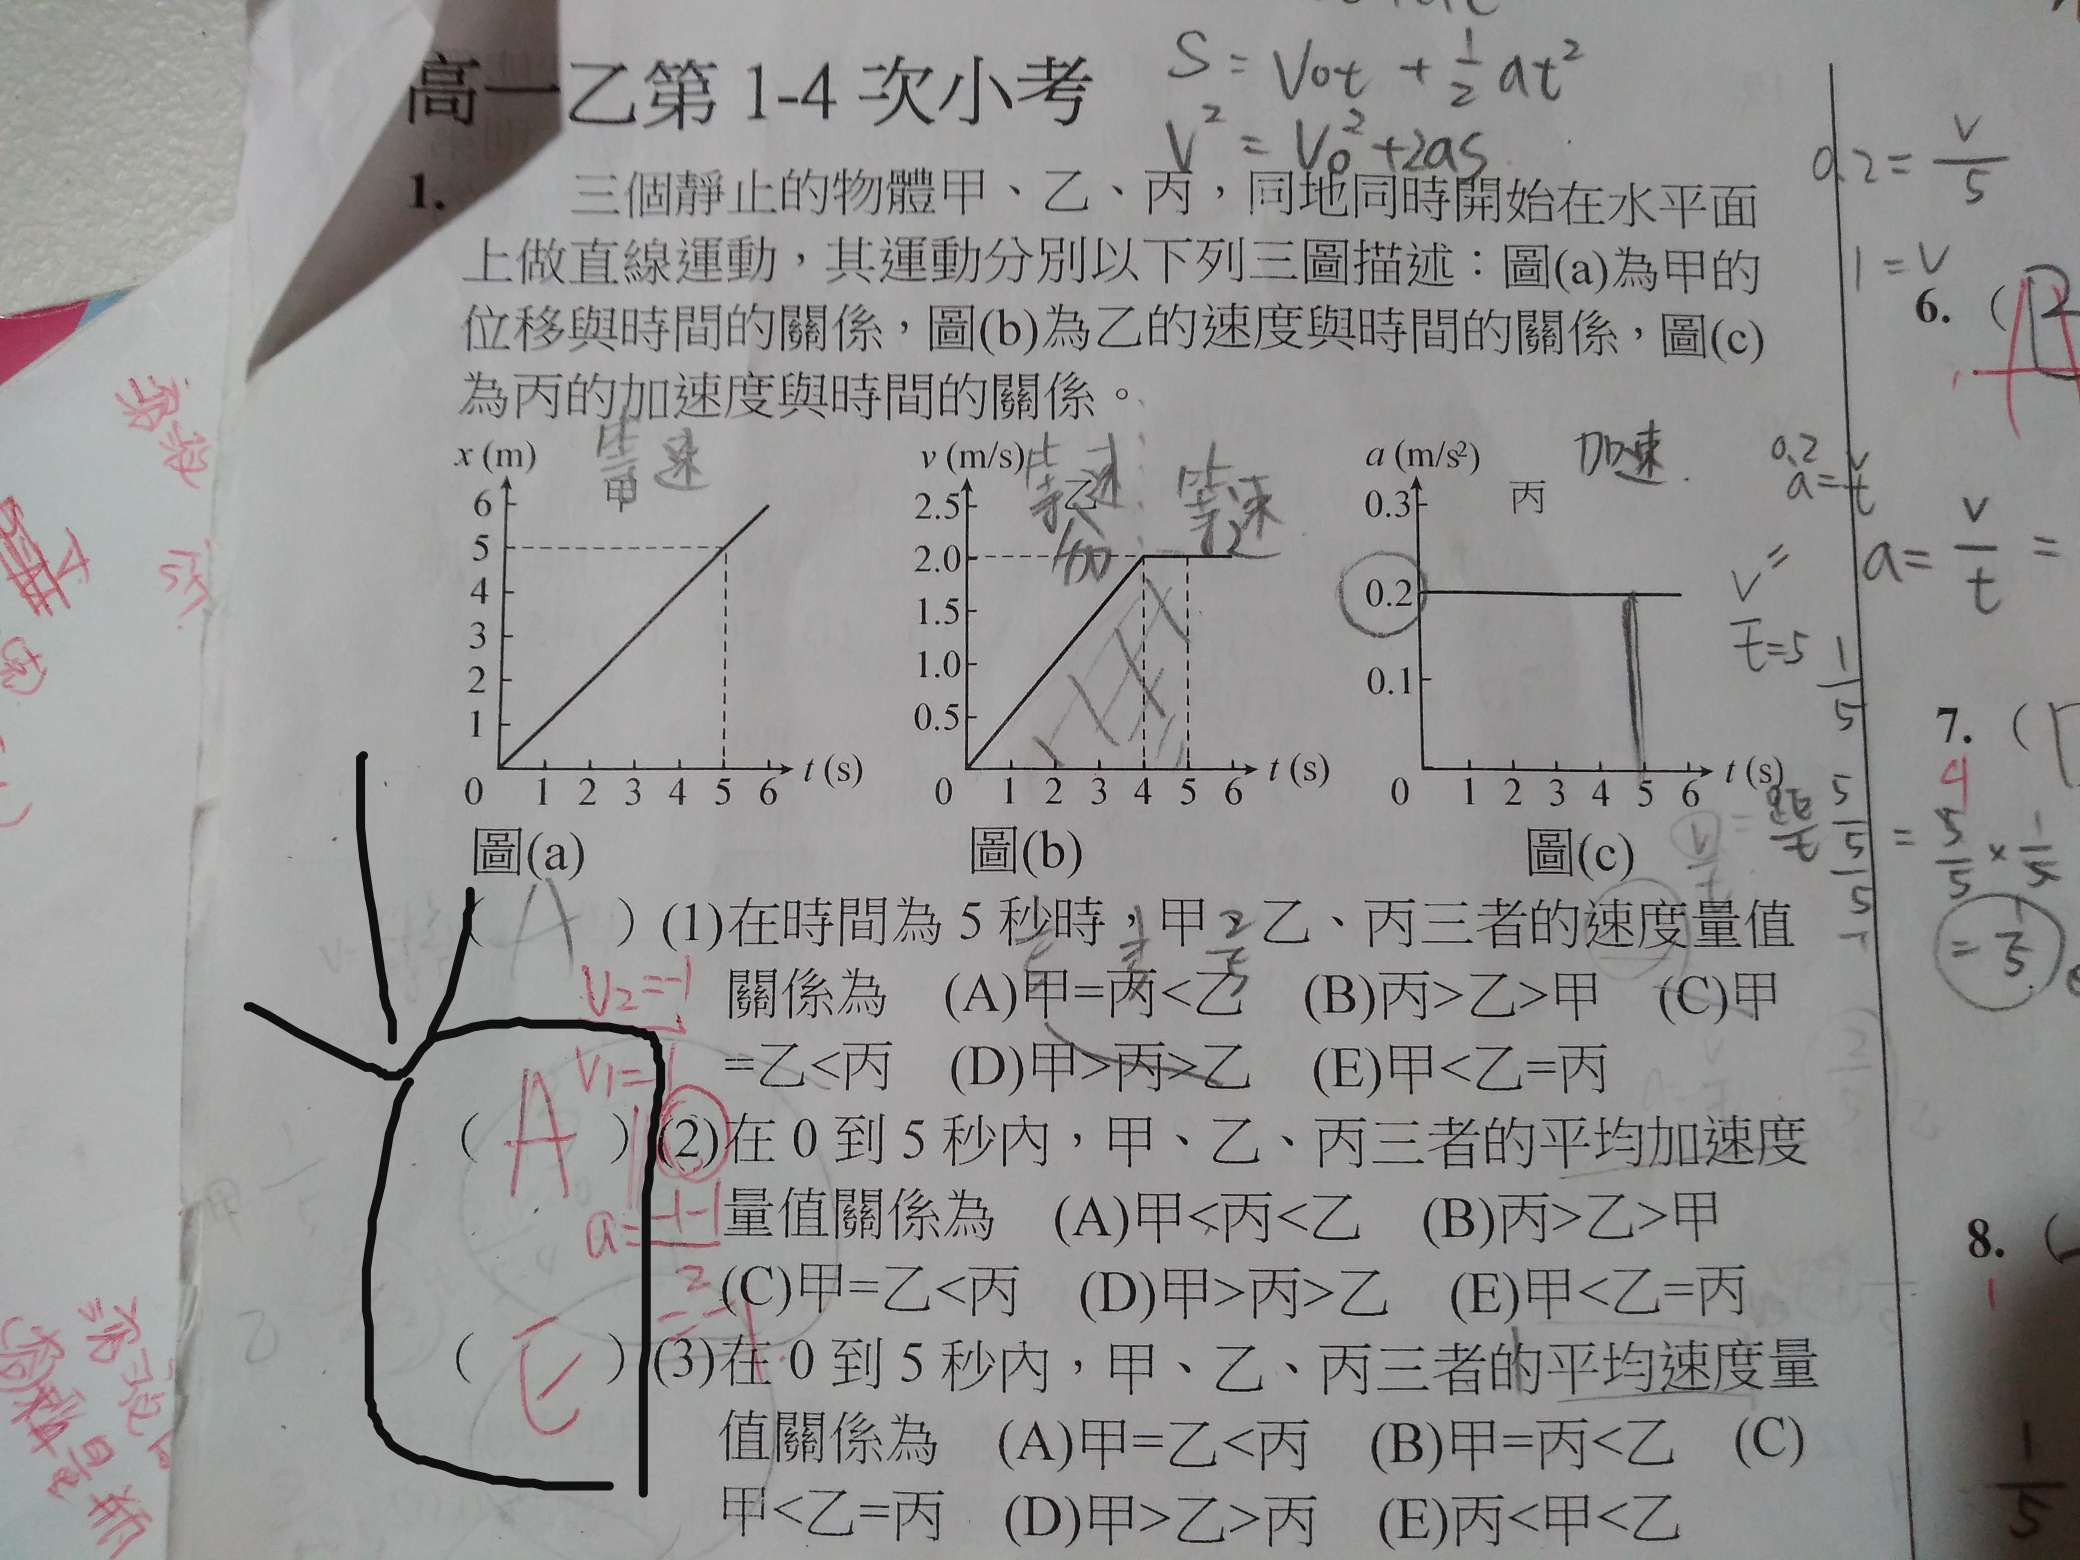 S = V₀t + 1/2 at²
V² = V₀² + 2as
高一乙第 1-4 次小考
1. 三個靜止的物體甲、乙、丙，同地同時開始在水平面
上做直線運動，其運動分別以下列三圖描述：圖(a)為甲的
位移與時間的關係，圖(b)為乙的速度與時間的關係，圖(c)
為丙的加速度與時間的關係。
x (m)
甲
等速
6
5
4
3
2
1
0 1 2 3 4 5 6 t (s)
圖(a)
v (m/s)
乙
等速
2.5
2.0
1.5
1.0
0.5
0 1 2 3 4 5 6 t (s)
圖(b)
a (m/s²)
丙
加速
0.3
0.2
0.1
0 1 2 3 4 5 6 t (s)
圖(c)
( A ) (1)在時間為 5 秒時，甲、乙、丙三者的速度量值
關係為 (A)甲=丙<乙 (B)丙>乙>甲 (C)甲
=乙<丙 (D)甲>丙>乙 (E)甲<乙=丙
V₂=-1
V₁=1
( A ) (2)在 0 到 5 秒內，甲、乙、丙三者的平均加速度
量值關係為 (A)甲<丙<乙 (B)丙>乙>甲
(C)甲=乙<丙 (D)甲>丙>乙 (E)甲<乙=丙
a = -1-1/2
= -1
( E ) (3)在 0 到 5 秒內，甲、乙、丙三者的平均速度量
值關係為 (A)甲=乙<丙 (B)甲=丙<乙 (C)
甲<乙=丙 (D)甲>乙>丙 (E)丙<甲<乙
0.2 = V/5
1 = V
6. (
0.2
a = V/t
a = V/t =
t=5
1/5
7. (
4
5/5 × 1/5
= 1/5
8. (
1
1/5